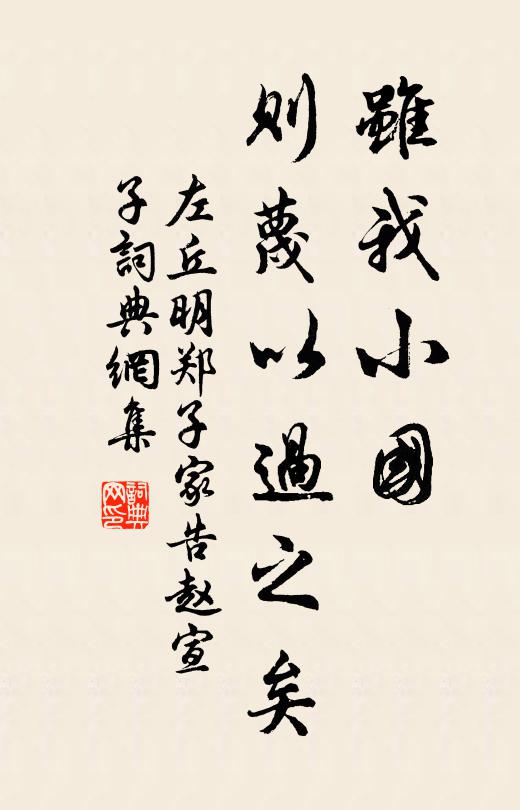 雖我小國
則蔑以過之矣
左丘明郑子家告赵宣
子詞典網集
詞典
网印